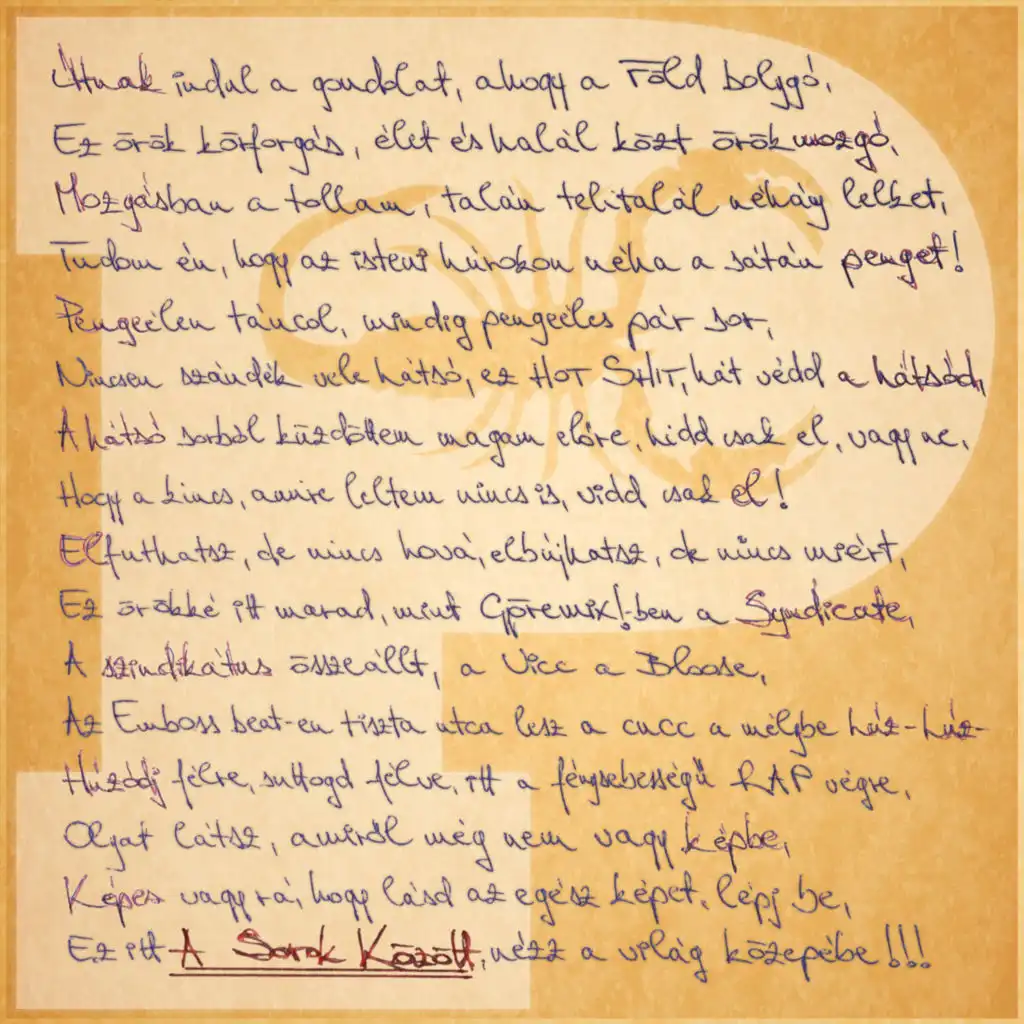 Útnak indul a gondolat, ahogy a Föld bolygó,
Ez örök körforgás, élet és halál közt örökmozgó,
Mozgásban a tollam, talán telitalál néhány lelket,
Tudom én, hogy az isteni húrokon néha a sátán penget!
Pengeélen táncol, mindig pengeéles pár sor,
Nincsen szándék vele hátsó, ez HOT SHIT, hát védd a hátsód,
A hátsó sorból küzdöttem magam előre, hidd csak el, vagy ne,
Hogy a kincs, amire leltem nincs is, vidd csak el!
Elfuthatsz, de nincs hová, elbújhatsz, de nincs miért,
Ez örökké itt marad, mint Gőremix!-ben a Syndicate,
A szindikátus összeállt, a Vicc a Bloose,
Az Emboss beat-en tiszta utca lesz a cucc a mélybe húz-húz-
Húzódj félre, suttogd félve, itt a fénysebességű RAP végre,
Olyat látsz, amiről még nem vagy képbe,
Képes vagy rá, hogy lásd az egész képet, lépj be,
Ez itt A Sorok Között, nézz a világ közepébe!!!